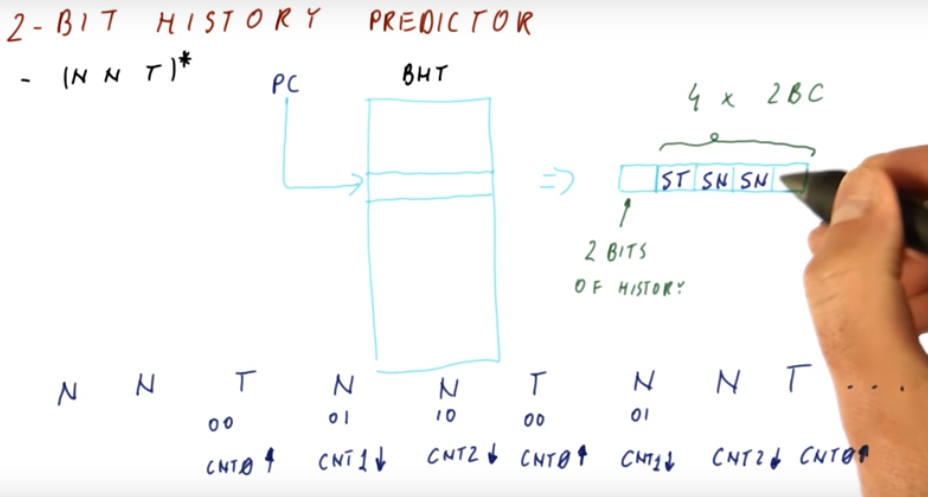 2-BIT HISTORY PREDICTOR
- (N N T)*
PC
BHT
4 x 2BC
ST SN SN
2 BITS
OF HISTORY
N N T N N T N N T ....
00 01 10 00 01
CNT0↑ CNT1↓ CNT2↓ CNT0↑ CNT1↓ CNT2↓ CNT0↑